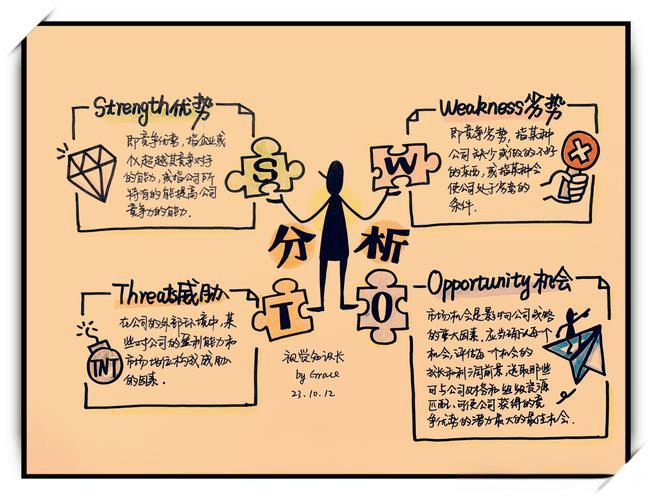 Strength优势
即竞争优势，指企业或
仅超越其竞争对手
的能力，或指公司所
特有的能提高公司
竞争力的能力.
S
W
Weakness劣势
即竞争劣势，指某种
公司缺少或做的不好
的东西，或指某种会
使公司处于劣势的
条件.
分析
Threats威胁
在公司的外部环境中，某
些对公司的盈利能力和
市场地位构成威胁
的因素.
TNT
T
O
Opportunity机会
市场机会是影响公司战略
的重大因素，应当确认每个
机会，评估每个机会的
成长和利润前景，选取那些
可与公司风格和组织资源
匹配、可使公司获得的竞
争优势的潜力最大的最佳机会.
视觉
长
by Grace
23.10.12